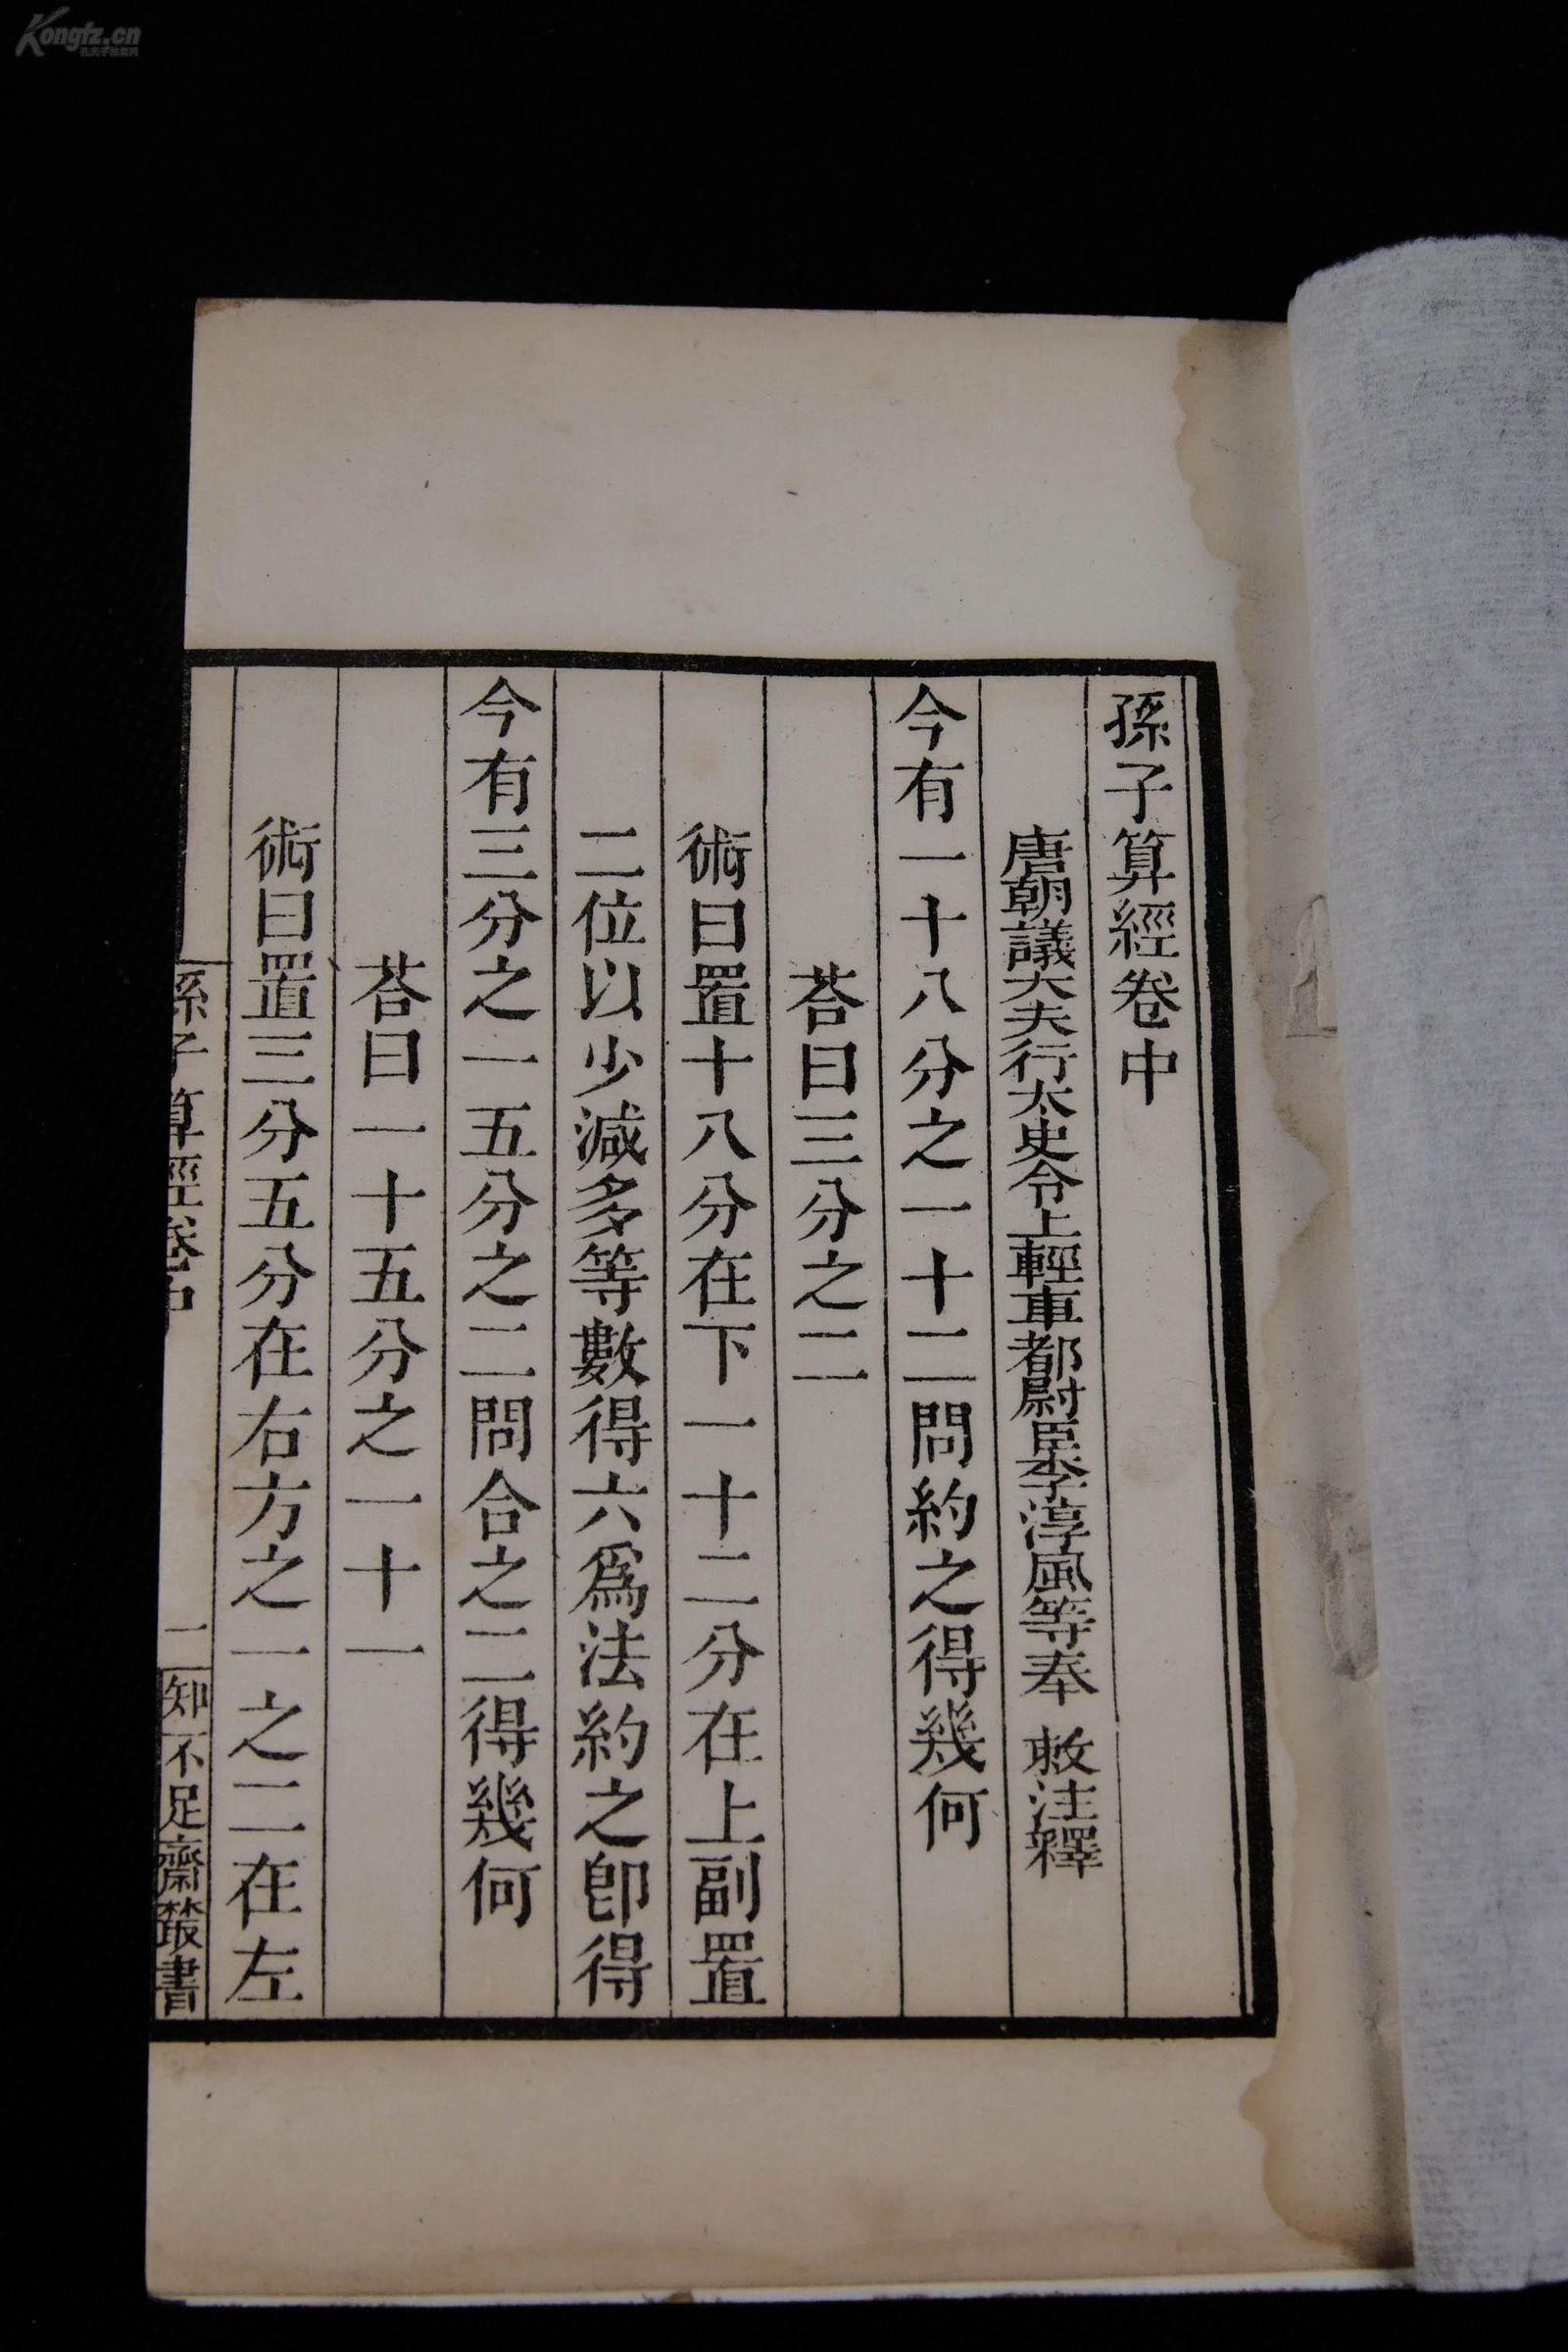 孫子算經卷中
唐朝議大夫行太史令上輕車都尉臣李淳風等奉 敕注釋
今有一十八分之一十二問約之得幾何
荅曰三分之二
術曰置十八分在下一十二分在上副置
二位以少減多等數得六爲法約之卽得
今有三分之一五分之二問合之二得幾何
荅曰一十五分之一十一
術曰置三分五分在右方之一之二在左
孫子算經卷中
一
知不足齋叢書
Kongfz.cn